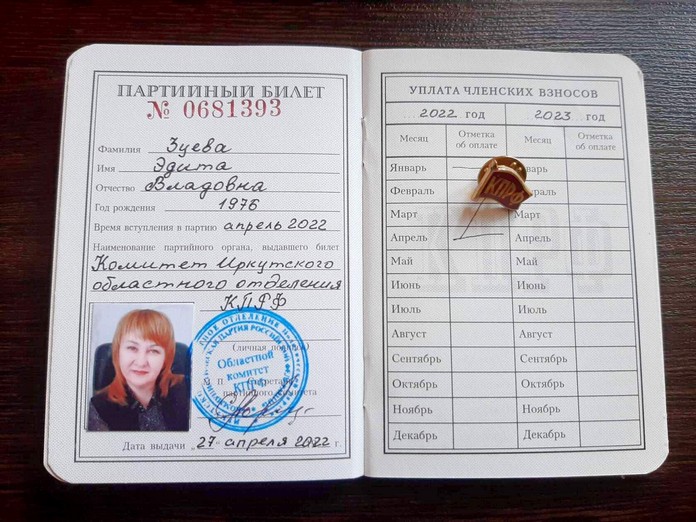 ПАРТИЙНЫЙ БИЛЕТ
№ 0681393
Фамилия Зуева
Имя Эдита
Отчество Владовна
Год рождения 1976
Время вступления в партию апрель 2022
Наименование партийного органа, выдавшего билет
Комитет Иркутского
областного отделения
КПРФ
(личная
Областной
комитет
КПРФ
М. П.
партийного комитета
Дата выдачи „27“ апреля 2022 г.
УПЛАТА ЧЛЕНСКИХ ВЗНОСОВ
2022 год 2023 год
Месяц Отметка об оплате Месяц Отметка об оплате
Январь варь
КПРФ
Февраль раль
Март Март
Апрель Апрель
Май Май
Июнь Июнь
Июль Июль
Август Август
Сентябрь Сентябрь
Октябрь Октябрь
Ноябрь Ноябрь
Декабрь Декабрь